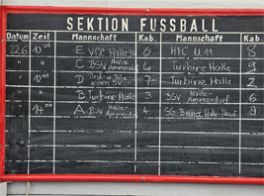 SEKTION FUSSBALL
Datum Zeit Mannschaft Kab. Mannschaft Kab.
22.6 10⁰⁰ E VfL Halle 6 HFC U11 8
C BSV Halle-Ammendorf 4 Turbine Halle 9
D 7 Turbine Halle 2
B Turbine Halle 3 BSV Halle-Ammendorf 6
14⁰⁰ A BSV Halle-Ammendorf 4 SG 9